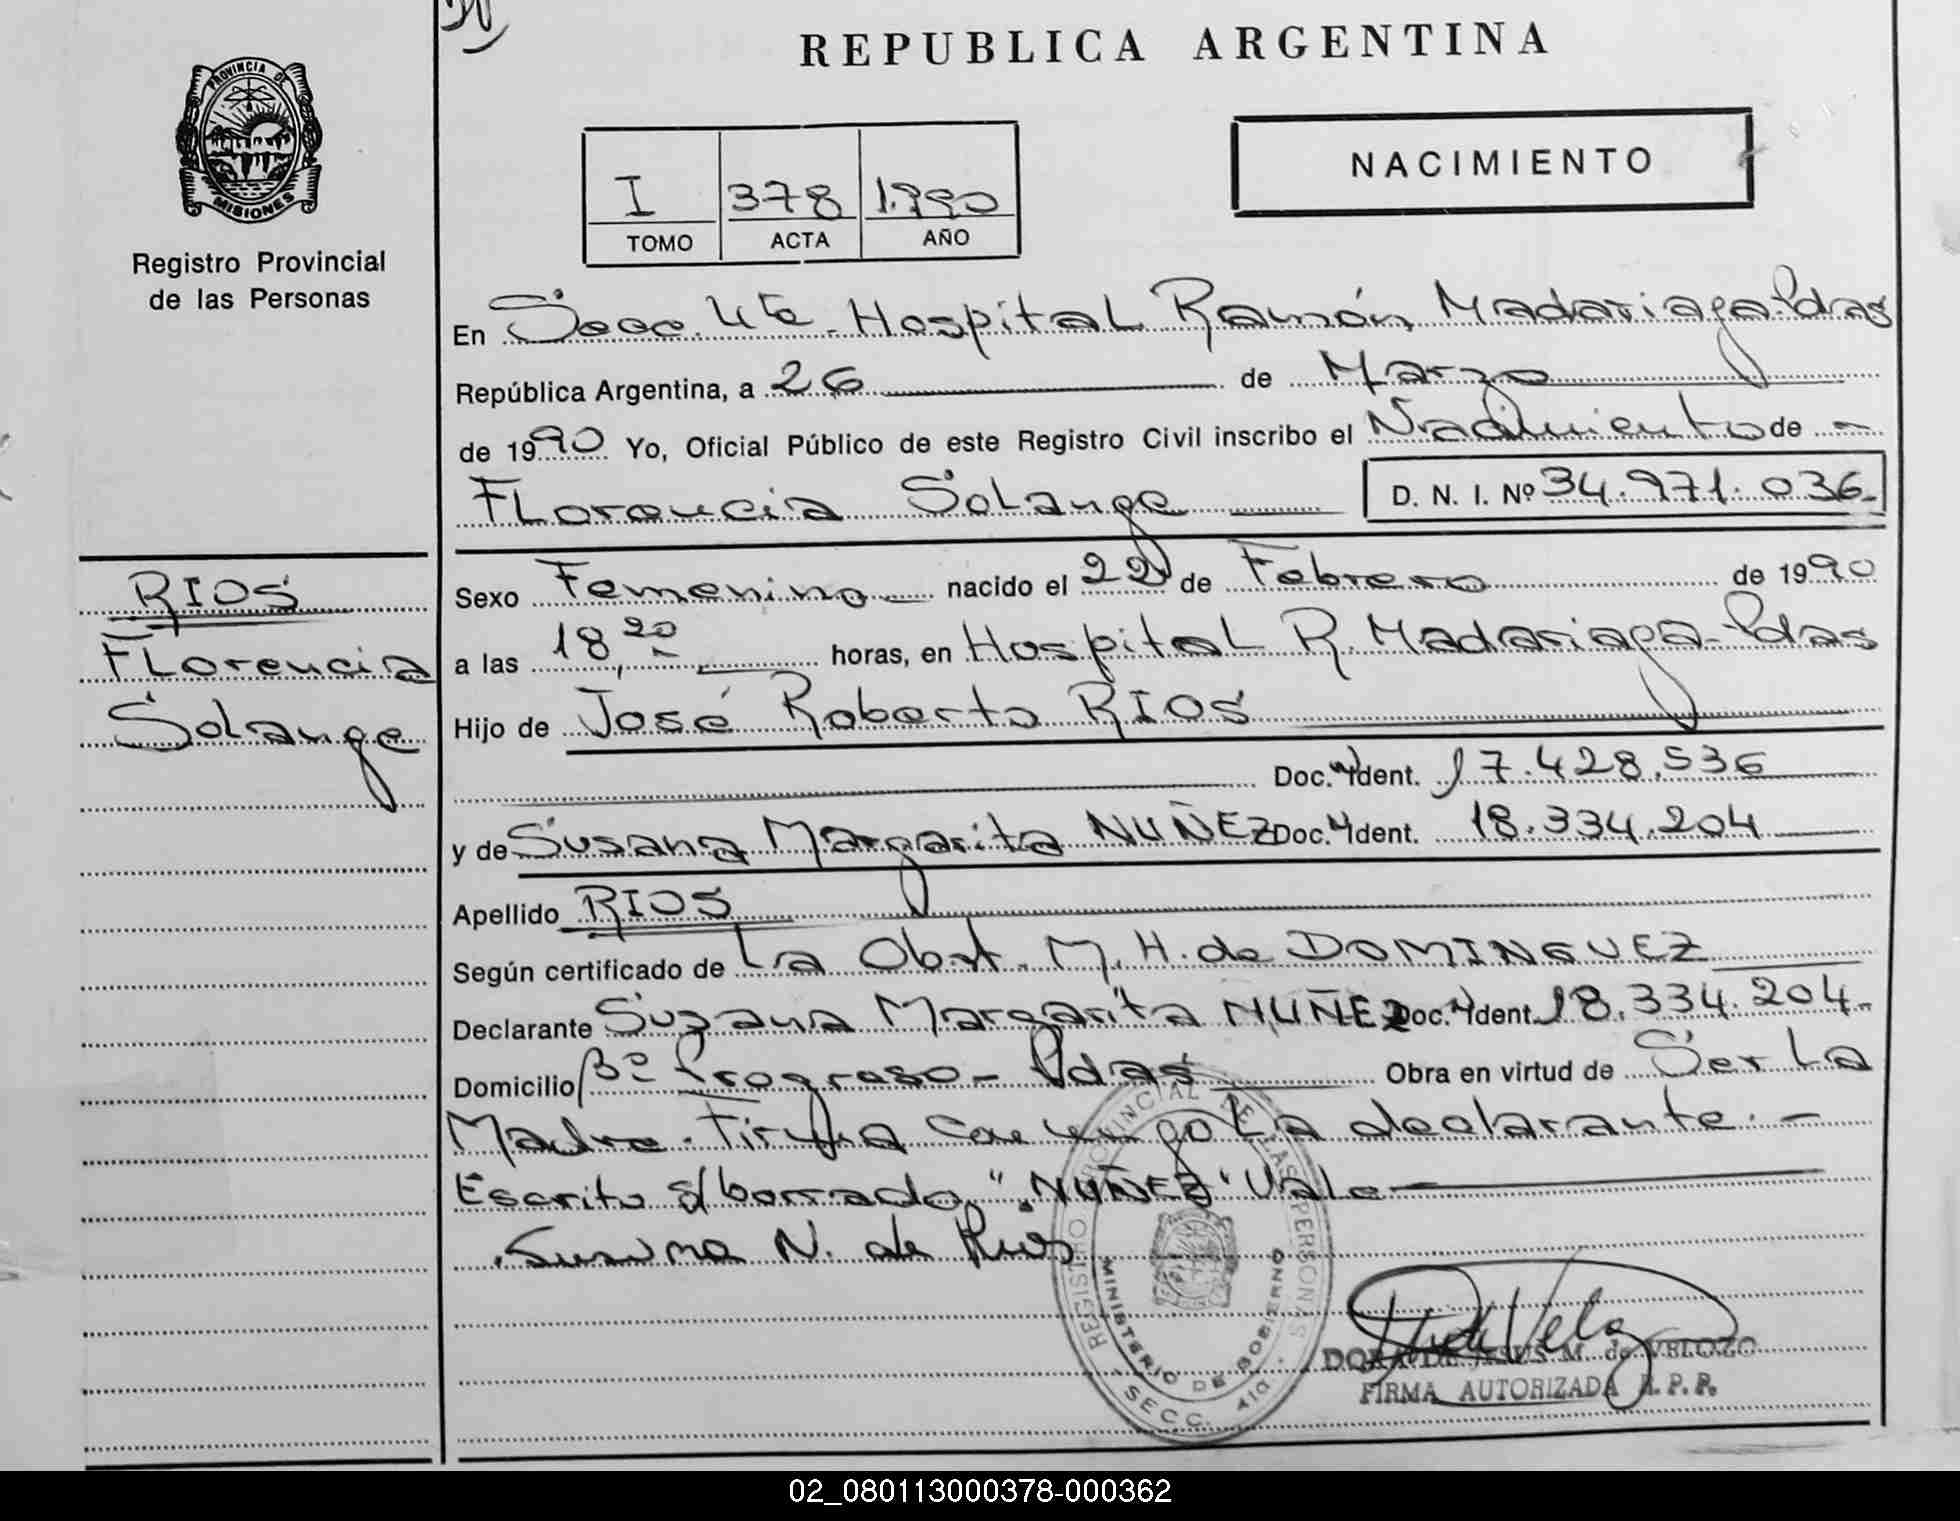 REPUBLICA ARGENTINA
PROVINCIA DE
MISIONES
Registro Provincial
de las Personas
NACIMIENTO
I 378 1.990
TOMO ACTA AÑO
En Secc. 4ta. Hospital Ramón Madariaga-Pdas
República Argentina, a 26 de Marzo
de 1990 Yo, Oficial Público de este Registro Civil inscribo el Nacimiento de -
Florencia Solange D. N. I. Nº 34.971.036-
RIOS
Florencia
Solange
Sexo Femenino nacido el 22 de Febrero de 1990
a las 18,20 horas, en Hospital R. Madariaga-Pdas
Hijo de José Roberto RIOS
Doc. Ident. 17.428.536
y de Susana Margarita NUÑEZ Doc. Ident. 18.334.204
Apellido RIOS
Según certificado de La Obst. M. H. de DOMINGUEZ
Declarante Susana Margarita NUÑEZ Doc. Ident. 18.334.204-
Domicilio Bº Progreso - Pdas Obra en virtud de Ser La
Madre. Firma conmigo La declarante. -
Escrito s/borrado "NUÑEZ" Vale
Susana N. de Rios
REGISTRO PROVINCIAL DE LAS PERSONAS
MINISTERIO DE GOBIERNO
SECC. 4ta.
DORA DE JESUS M. de VELOZO
FIRMA AUTORIZADA R. P. P.
02_080113000378-000362